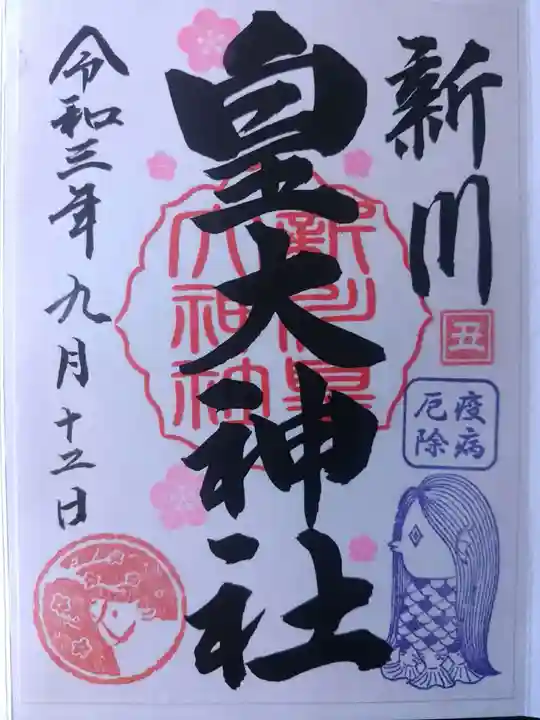 新川
皇大神社
令和三年九月十五日
新川皇
大神社
丑
疫病
厄除